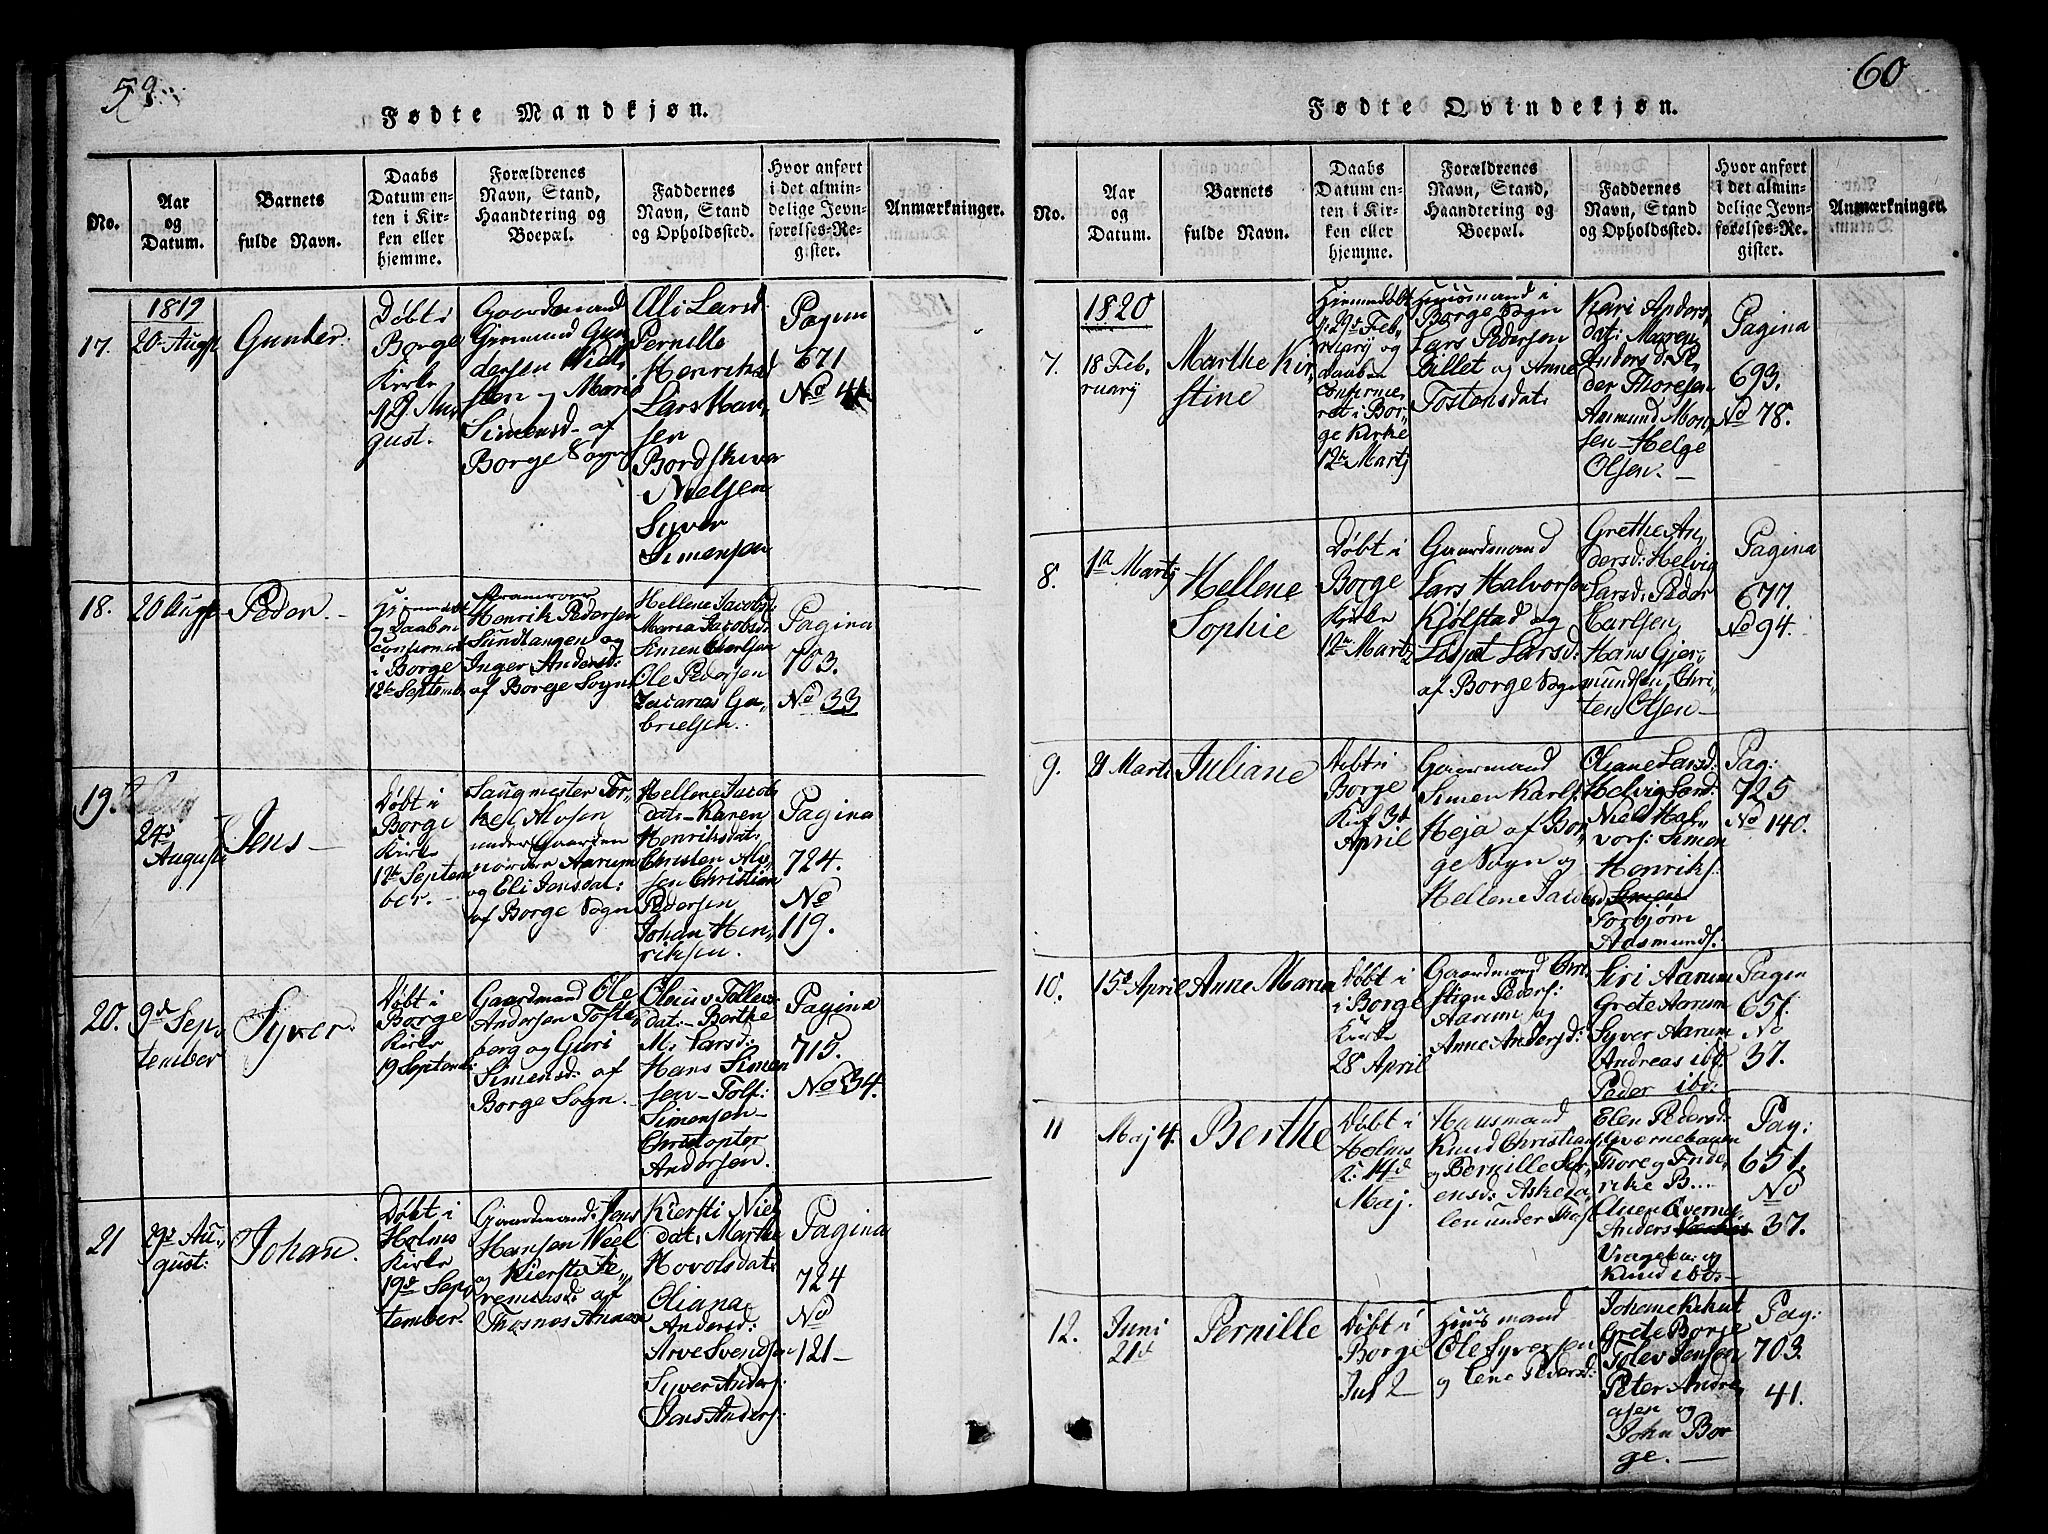 59.
Fødte Mandkjøn.
No.
Aar
og
Datum.
Barnets
fulde Navn.
Daabs
Datum en-
ten i Kir-
ken eller
hjemme.
Forældrenes
Navn, Stand,
Haandtering og
Boepæl.
Faddernes
Navn, Stand
og Opholdssted.
Hvor anført
i det almin-
delige Jevn-
førelses-Re-
gister.
Anmærkninger.
17.
1819
20 Augst
Gunder.
Døbt i
Borge
Kirke
29 Au,,
gust.
Gaardmand
Gun
dersen
og Marie
Simensd. af
Borge Sogn
Larsd:
Pernille
Henriksd
Lars Han,,
sen
Nielsen
Syver
Simensen
Pagina
671
No 41
18.
20 Augst
Peder. -
Hjemmedøbt
og Daaben
confirmert
i Borge
12te Septemb.
Henrik Pedersen
Sundlangen og
Inger Andersd:
af Borge Sogn
Hellene Jacobsd:
Maria Jacobsd:
Simen Charlsen
Ole Pedersen
Zacarias Ga,,
brielsen.
Pagina
703.
No 33
19.
24d
August
Jens -
Døbt i
Borge
Kirke
12te Septem
ber. -
Saugmester Tor,,
kel Alvsen
under Gaarden
nordre Aarum
og Eli Jensdat:
af Borge Sogn
Hellene Jacobs
dat:- Karen
Henriksdat:
Christen Alv,,
sen Christian
Pedersen
Johan Hen,,
riksen.
Pagina
724.
No
119.
20.
9de Sep,,
tember
Syver.
Døbt i
Borge
Kirke
19 Septemb:
Gaardmand Ole
Andersen Tofte,,
berg og Guri
Simensd: af
Borge Sogn. -
dat:- Berthe
M: Larsd:
Hans Simen
sen - Tolf:
Simensen -
Christopher
Andersen.
Pagina
715.
No 34.
21
29d Au,,
gust:
Johan.
Døbt i
Holms
Kirke
19de Sep,,
tember.
Gaardmand: Jens
Hansen Weel
og Kiersti
af
Thosnes Annex
Kiersti Niels
dat, Marthe
Hovolsdat:
Oliana
Andersd:
Arve Svendsen
Syver Anders:
Jens Anders:
Pagina
724
No
121 -
60
Fødte Qvindekjøn.
No.
Aar
og
Datum.
Barnets
fulde Navn.
Daabs
Datum en-
ten i Kir-
ken eller
hjemme.
Forældrenes
Navn, Stand,
Haandtering og
Boepæl.
Faddernes
Navn, Stand
og Opholdssted.
Hvor anført
i det almin-
delige Jevn-
førelses-Re-
gister.
Anmærkninger.
7.
1820
18 Feb,,
ruarij
Marthe Kir,,
stine
Hjemmedøbt
d: 29de Feb,,
ruarij og
Daaben
confirme,,
ret i Bor,,
ge Kirke
12te Martj
Huusmand i
Borge Sogn
Lars Pedersen
Lillet og Anne
Tostensdat:
Kari Anders,,
dat: Maren
Anders d: Pe,,
der Thoresen
Amund Mon,,
sen - Helge
Olsen. -
Pagina
693.
No 78.
8.
1te Martj
Hellene
Sophie
Døbt i
Borge
Kirke
12te Martj
Gaardmand
Lars Halvorsen
Kjølstad og
Lisbet Larsd:
af Borge Sogn
Grethe An,,
dersd: Helvig
Larsd: Peder
Carlsen,
Hans Gjer,,
mundsen, Chri,,
sten Olsen -
Pagina
677.
No 94.
9.
21 Marti
Juliane
Døbt i
Borge
Kirk 3d
April
Gaardmand
Simen Karls:
Heja af Bor,,
ge Sogn og
Hellene Jacobsd
Oliane Larsd:
Helvig Lard:
Niels Hal,,
vors: Simen
Henriks:
Torbjørn
Aasmunds:
Pag:
725
No 140.
10.
15d April
Anne Maria
Døbt i
i Borge
Kirke
28 April
Gaardmand Chri,,
stian Peders:
Aarum og
Anne Andersd:
Siri Aarum
Grete Aarum
Syver Aarum
Andreas ibd:
Peder ibd:
Pagin
651.
No
37.
11
Maj 4.
Berthe
Døbt i
Holms
K: 14de
Maj.
Huusmand
Knud Christians,,
og Pernille
under
Elen Pedersd:
Thore og Fride,,
rike B...
Anders
og
Knud ibd: -
Pag:
651.
No
37.
12.
Juni
21st
Pernille
Døbt i
Borge
Jul 2
Huusmand
Ole Syversen
og Lene Pedersd:
Grete Borge
Tolev Jensen
Peter Andre,,
asen og
John Bor
ge. -
Pag:
703.
41.